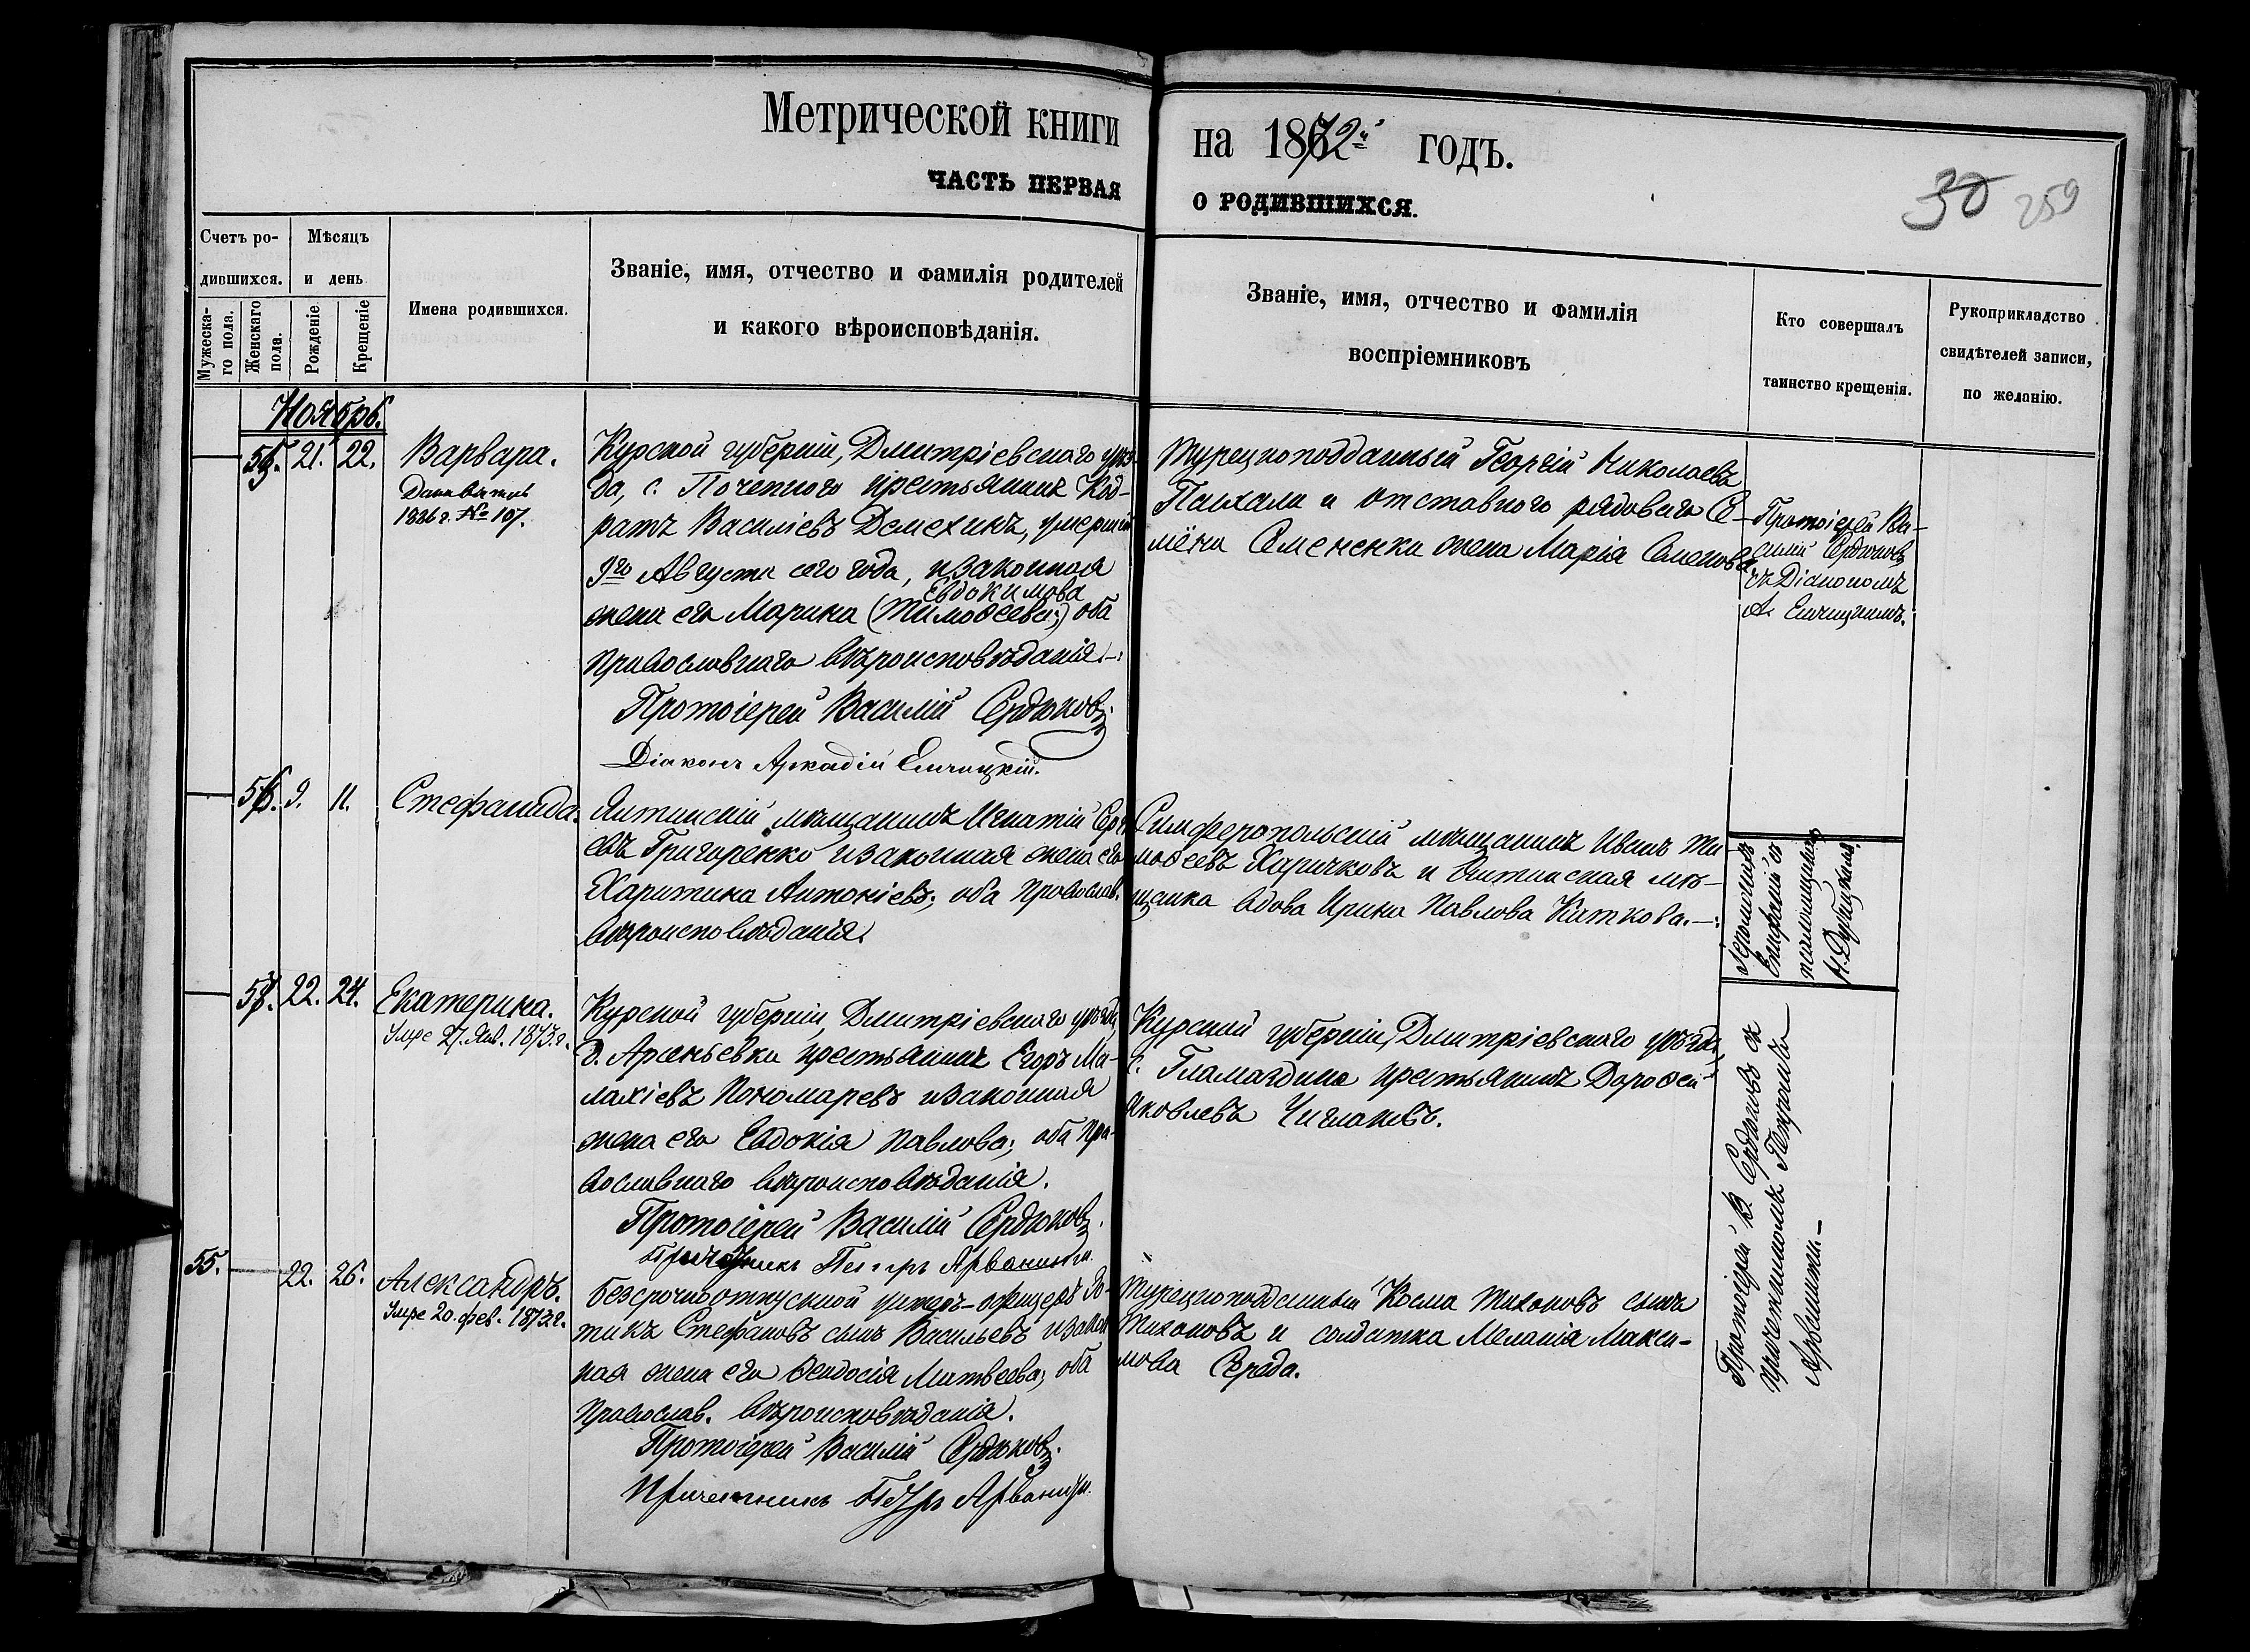 Метрической книги
на 1872й годъ.
ЧАСТЬ ПЕРВАЯ
О РОДИВШИХСЯ.
30 259
Счетъ ро-
дившихся.
Мужеска-
го пола.
Женскаго
пола.
Мѣсяцъ
и день
Рожденіе
Крещеніе
Имена родившихся.
Званіе, имя, отчество и фамилія родителей
и какого вѣроисповѣданія.
Званіе, имя, отчество и фамилія
воспріемниковъ
Кто совершалъ
таинство крещенія.
Рукоприкладство
свидѣтелей записи,
по желанію.
Ноябрь.
21. 22. Варвара.
1886 г. № 107.
Курской губерніи, Дмитріевскаго уѣз-
да, с. Почепнаго крестьянинъ Код-
ратъ Василіевъ Демехинъ, умершій
9го Августа сего года, и законная
Евдокимова
жена его Марина (Тимофеева;) оба
православнаго вѣроисповѣданія.
Протоіерей Василій Сердюковъ.
Діаконъ Аркадій Ельчицкій.
Турецкоподданный Георгій Николаевъ
Пасхали и отставнаго рядоваго Се-
мёна Семененки жена Марія Семенова.
Протоіерей Ва-
силій Сердюковъ
съ Діакономъ
А. Ельчицкимъ.
56. 9. 11. Стефанида.
Ялтинскій мѣщанинъ Игнатій Сергѣ
евъ Григоренко и законная жена его
Харитина Антоніева; оба православ.
вѣроисповѣданія.
Симферопольскій мѣщанинъ Иванъ Ти
мофеевъ Харичковъ и Ялтинская мѣ-
щанка вдова Ирина Павлова Каткова.
Іеромонахъ
Епифаній съ
псаломщикомъ
Н. Дубицкимъ.
57. 22. 24. Екатерина.
Умре 27. Янв. 1873. г.
Курской губерніи, Дмитріевскаго уѣзда,
д. Арсеньевки крестьянинъ Егоръ Ма-
лахіевъ Пономаревъ и законная
жена его Евдокія Павлова; оба пра-
вославнаго вѣроисповѣданія.
Протоіерей Василій Сердюковъ.
Причетникъ Петръ Арванити.
Курской губерніи, Дмитріевскаго уѣзда,
с. Гламаздина крестьянинъ Дорофей
Яковлевъ Чиглаковъ.
Протоіерей В. Сердюковъ съ
причетникомъ Петромъ
Арванити.
55. 22. 26. Александръ.
Умре 20. фев. 1873. г.
Безсрочноотпускной унтеръ-офицеръ Фо-
тикъ Стефановъ сынъ Васильевъ и закон
ная жена его Феодосія Матвеева; оба
православ. вѣроисповѣданія.
Протоіерей Василій Сердюковъ.
Причетникъ Петръ Арванити.
Турецкоподданный Косма Тихоновъ сынъ
Тихоновъ и солдатка Меланія Макси-
мова Середа.